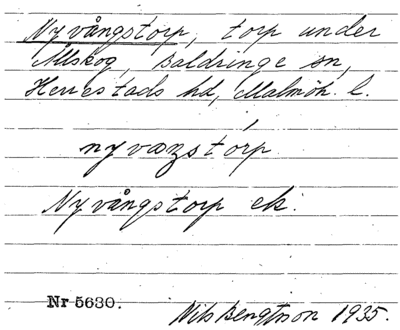 Nyvångstorp, torp under
Allskog, Baldringe sn,
Herrestads hd, Malmöh. l.
nyvaŋstórp
Nyvångstorp ek.
Nr 5630. Nils Bengtsson 1935.